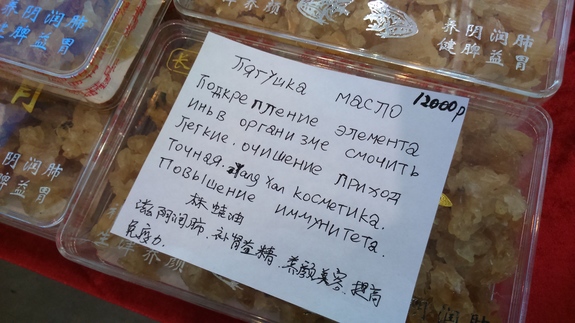 养阴润肺
健脾益胃
养阴润肺
健脾益胃
长
月
阴润肺
脾益胃
Пягушка масло 12000р
Подкрепление элемента
инь в организме смочить
Легкие. очишение приход
Точная. Jang Хал косметика.
Повышение иммунитета.
林蛙油
滋阴润肺、补肾益精、养颜美容、提高
免疫力.
养颜
养阴润肺
健脾益胃